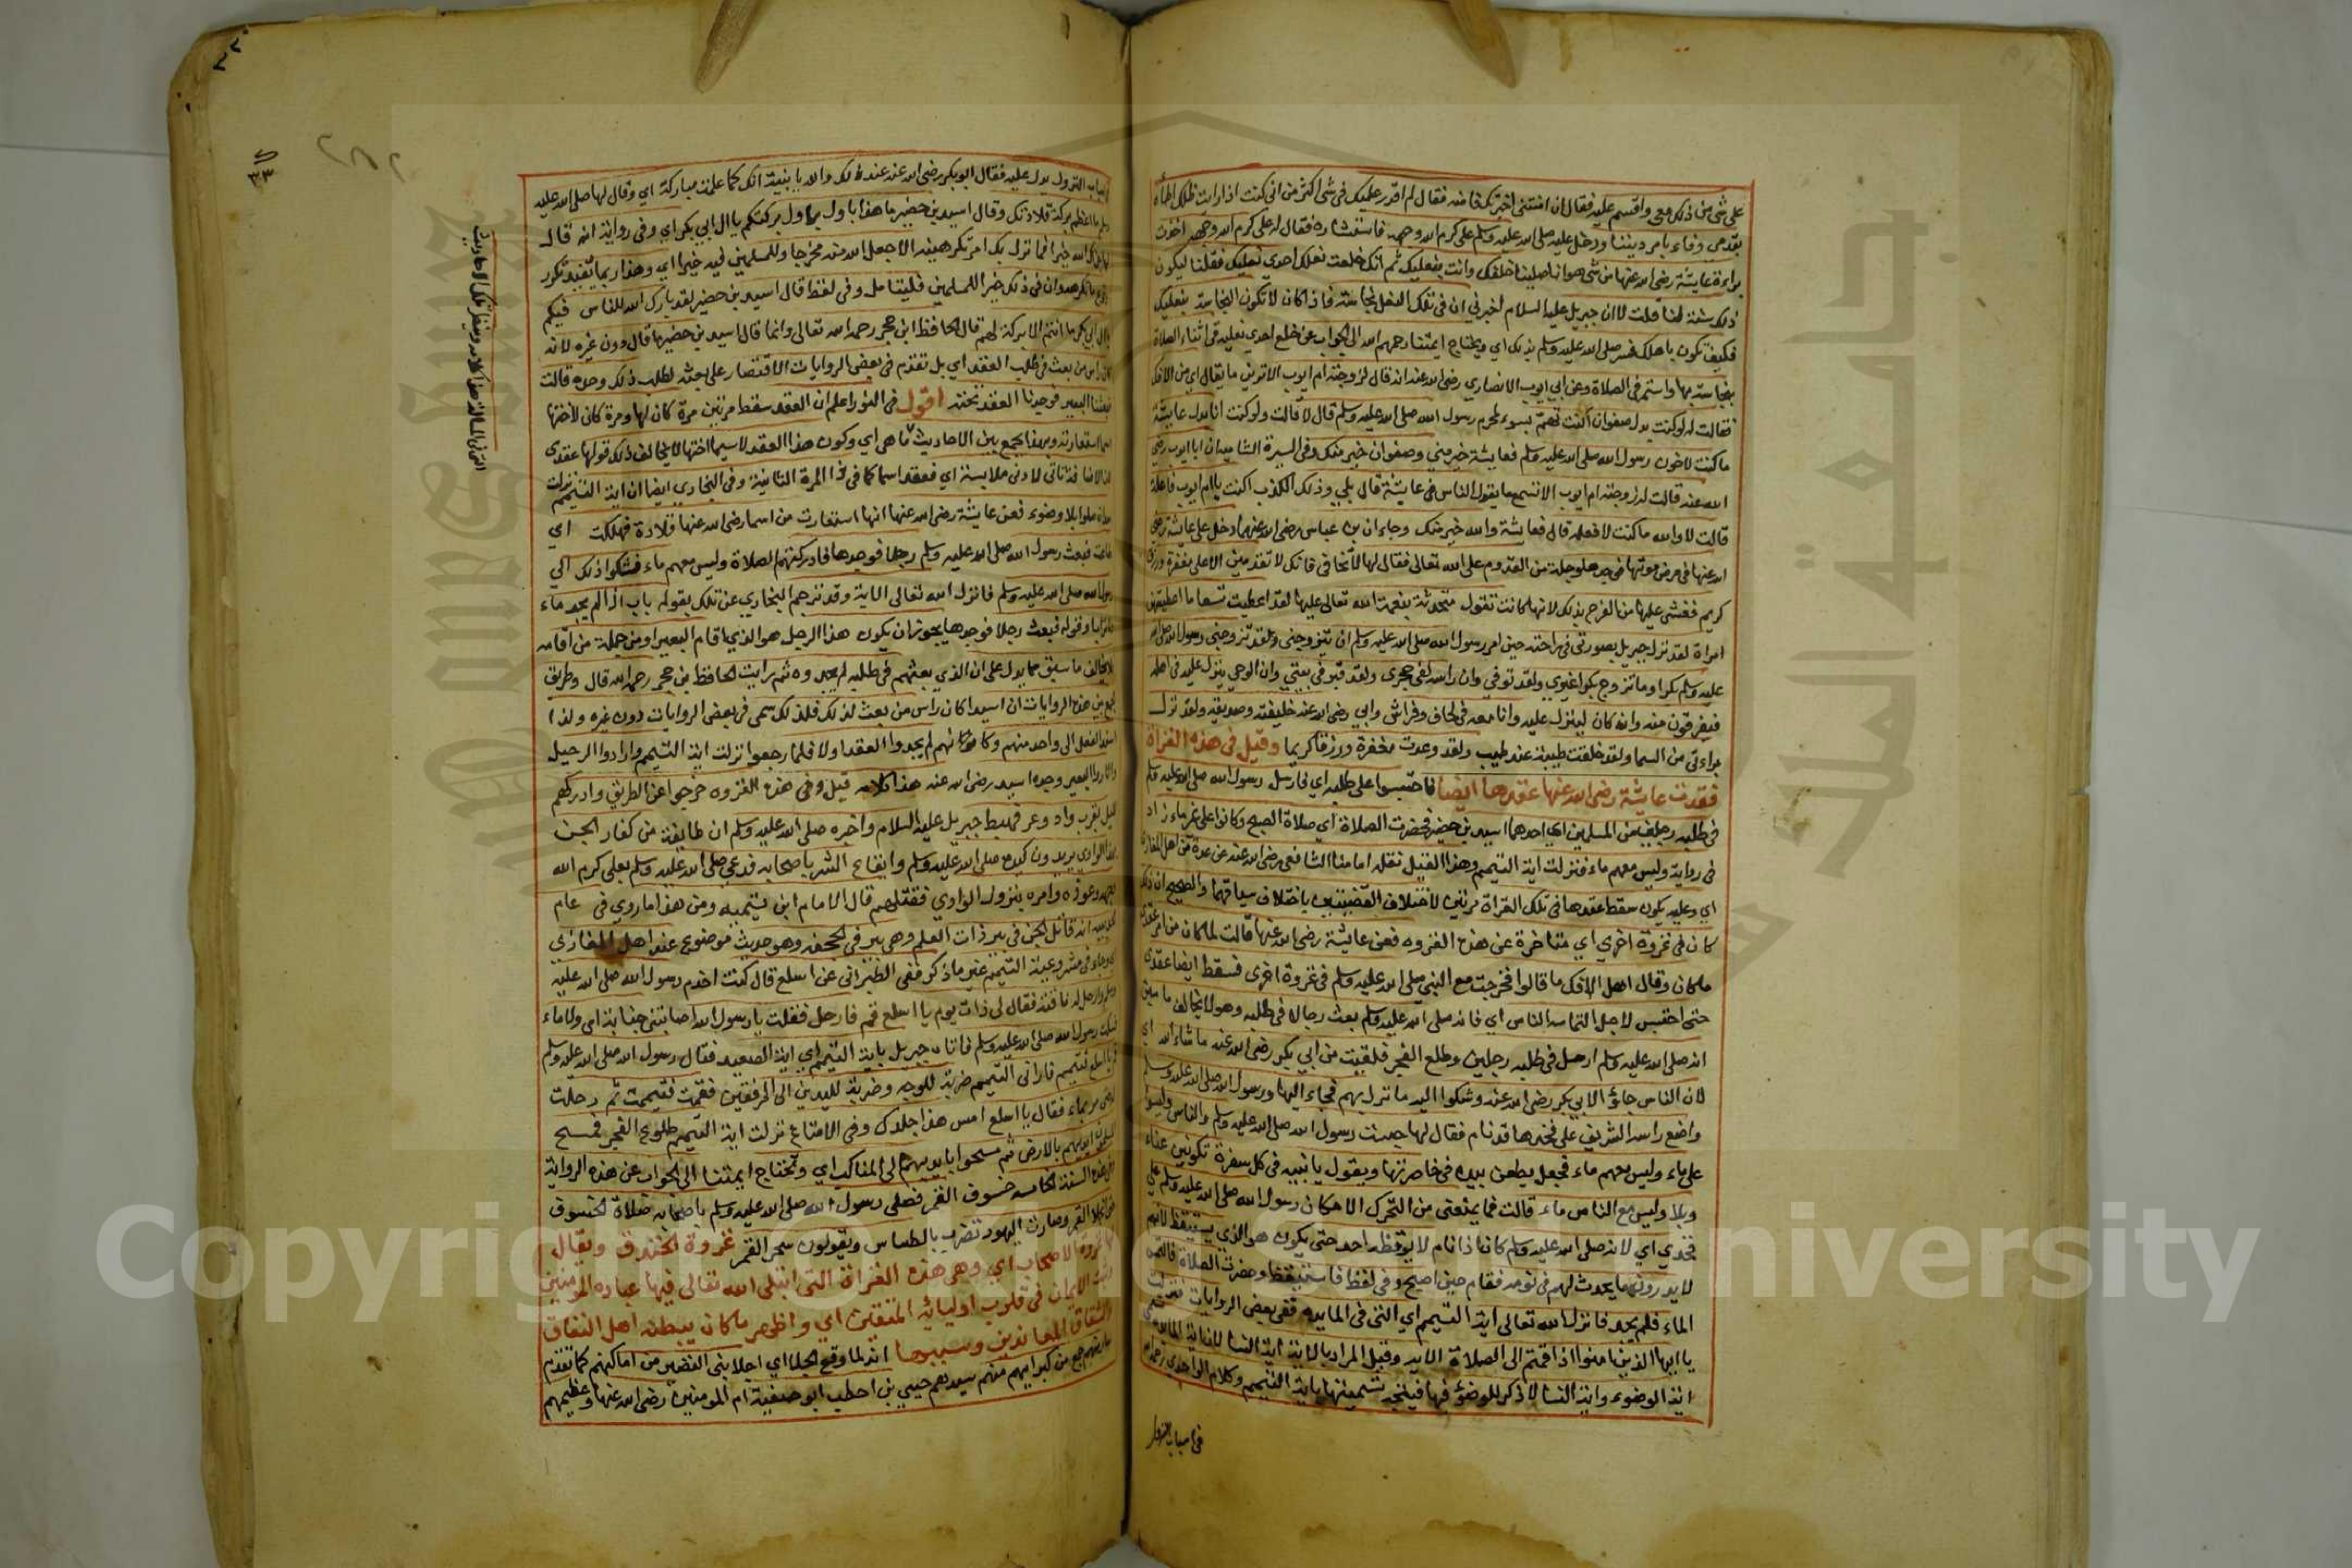 على شئ من ذلك معى واقسم عليه فقال ان امنتنى اخبرتك فامنه فقال لم اقدر عليك فى شئ اكثر من انى كنت اذا رايت ظلك اطاه
بقدمي وفاء بامر ديننا ودخل عليه صلى الله عليه وسلم على كرم الله وجهه فاستشاره فقال له على كرم الله وجهه اخذت
براءة عايشة رضى الله عنها من شئ هو انا صلينا خلفك وانت بنعليك ثم انك خلعت نعلك احدي نعليك فقلنا ليكون
ذلك سنة لنا قلت لا ان جبريل عليه السلام اخبرني ان فى تلك النعل نجاسة فاذا كان لا تكون النجاسة بنعليك
فكيف تكون باهلك فسر صلى الله عليه وسلم بذلك اي ويحتاج ايمتنا رحمهم الله الى الجواب عن خلع احدي نعليه فى اثناء الصلاة
بنجاسة بها واستمر فى الصلاة وعن ابي ايوب الانصاري رضى الله عنه انه قال لزوجته ام ايوب الا ترين ما يقال اي من الافك
فقالت له لو كنت بدل صفوان اكنت تهم بسوء لحرم رسول الله صلى الله عليه وسلم قال لا قالت ولو كنت انا بدل عايشة
ما كنت لاخون رسول الله صلى الله عليه وسلم فعايشة خير مني وصفوان خير منك وفى السيرة الشامية ان ابا ايوب رضي
الله عنه قالت له زوجته ام ايوب الا تسمع ما يقول الناس فى عايشة قال بلى وذلك الكذب اكنت يا ام ايوب فاعلة
قالت لا والله ما كنت لافعله قال فعايشة والله خير منك وجاء ان ابن عباس رضى الله عنهما دخل على عايشة رضي
الله عنها فى مرض موتها فوجدها وجلة من القدوم على الله تعالى فقال لها لا تخافى فانك لا تقدمين الا على مغفرة ورزق
كريم فغشى عليها من الفرح بذلك لانها كانت تقول متحدثة بنعمة الله تعالى عليها لقد اعطيت تسعا ما اعطيتهن
امراة لقد نزل جبريل بصورتى فى راحته حين امر رسول الله صلى الله عليه وسلم ان يتزوجنى ولقد تزوجنى رسول الله صلى الله
عليه وسلم بكرا وما تزوج بكرا غيري ولقد توفي وان راسه لفى حجرى ولقد قبر فى بيتي وان الوحي ينزل عليه فى اهله
فيفرقون منه وانه كان لينزل عليه وانا معه فى لحاف وفراش وابي رضى الله عنه خليفته وصديقه ولقد نزلـ
براءتى من السما ولقد خلقت طيبة عند طيب ولقد وعدت مغفرة ورزقا كريما وقيل فى هذه الغزاة
فقدت عايشة رضى الله عنها عقدها ايضا فاحتبسوا على طلبه اي فارسل رسول الله صلى الله عليه وسلم
فى طلبه رجلين من المسلمين اي احدهما اسيد بن حضير فحضرت الصلاة اي صلاة الصبح وكانوا على غير ماء زاد
فى رواية وليس معهم ماء فنزلت اية التيمم وهذا القيل نقله امامنا الشافعى رضى الله عنه عن عدة من اهل المغازي
اي وعليه يكون سقط عقدها فى تلك الغزاة مرتين لاختلاف القضيتين باختلاف سياقهما والصحيح ان ذلك
كان فى غزوة اخري اي متاخرة عن هذه الغزوه فعن عايشة رضى الله عنها قالت لما كان من امر عقدي
ما كان وقال اهل الافك ما قالوا فخرجت مع النبي صلى الله عليه وسلم فى غزوة اخرى فسقط ايضا عقدي
حتى احتبس لاجل التماسه الناس اي فانه صلى الله عليه وسلم بعث رجالا فى طلبه وهو لا يخالف ما سبق
انه صلى الله عليه وسلم ارسل فى طلبه رجلين وطلع الفجر فلقيت من ابي بكر رضى الله عنه ما شاء الله اي
لان الناس جاؤ الابي بكر رضى الله عنه وشكوا اليه ما نزل بهم فجاء اليها ورسول الله صلى الله عليه وسلم
واضع راسه الشريف على فخذها قد نام فقال لها حبست رسول الله صلى الله عليه وسلم والناس وليسوا
على ماء وليس معهم ماء فجعل يطعن بيده فى خاصرتها ويقول يا بنيه فى كل سفرة تكونين عناء
وبلاء وليس مع الناس ماء قالت فما يمنعنى من التحرك الا مكان رسول الله صلى الله عليه وسلم على
فخذي اي لانه صلى الله عليه وسلم كان اذا نام لا يوقظه احد حتى يكون هو الذي يستيقظ لانهم
لا يدرون ما يحدث لهم فى نومه فقام حين اصبح وفى لفظ فاستيقظ وحضرت الصلاة فالتمس
الماء فلم يجد فانزل الله تعالى اية التيمم اي التى فى المايده ففى بعض الروايات نزلت
يا ايها الذين امنوا اذا قمتم الى الصلاة الايه وقيل المراد بالاية اية النسا لان اية المايده تسمى
اية الوضوء واية النسا لا ذكر للوضؤ فيها فيتجه تسميتها باية التيمم وكلام الواحدي رحمه الله
فى اسباب النزول
اسباب النزول يدل عليه فقال ابو بكر رضى الله عنه عند ذلك والله يا بنية انك كما علمت مباركة اي وقال لها صلى الله عليه
وسلم ما اعظم بركة قلادتك وقال اسيد بن حضير ما هذا باول بركتكم يا ال ابي بكر اي وفى رواية انه قال
لها جزاك الله خيرا فما نزل بك امر تكرهينه الا جعل الله منه مخرجا وللمسلمين فيه خيرا اي وهذا ربما يفيد تكرر
وقوع ما تكرهه وان فى ذلك خيرا للمسلمين فليتامل وفى لفظ قال اسيد بن حضير لقد بارك الله للناس فيكم
يا ال ابي بكر ما انتم الا بركة لهم قال الحافظ ابن حجر رحمه الله تعالى وانما قال اسيد بن حضير ما قال دون غيره لانه
كان راس من بعث فى طلب العقد اي بل تقدم فى بعض الروايات الاقتصار على بعثه لطلب ذلك وحده قالت
فبعثنا البعير فوجدنا العقد تحته اقول فى النور اعلم ان العقد سقط مرتين مرة كان لها ومرة كان لاختها
اسما استعارته وبهذا يجمع بين الاحاديث ما هى اي وكون هذا العقد لاسما اختها لا يخالف ذلك قولها عقدى
لان الاضافة تاتى لادنى ملابسة اي فعقد اسما كما فى المرة الثانية وفى البخاري ايضا ان اية التيمم نزلت
بعد ان صلوا بلا وضوء فعن عايشة رضى الله عنها انها استعارت من اسما رضى الله عنها قلادة فهلكت اي
ضاعت فبعث رسول الله صلى الله عليه وسلم رجلا فوجدها فادركتهم الصلاة وليس معهم ماء فشكوا ذلك الي
رسول الله صلى الله عليه وسلم فانزل الله تعالى الاية وقد ترجم البخاري عن تلك بقوله باب اذا لم يجد ماء
ولا ترابا وقوله فبعث رجلا فوجدها يجوز ان يكون هذا الرجل هو الذي اقام البعير او من جملة من اقامه
فلا يخالف ما سبق مما يدل على ان الذي بعثهم فى طلبه لم يجدوه ثم رايت الحافظ بن حجر رحمه الله قال وطريق
الجمع بين هذه الروايات ان اسيدا كان راس من بعث لذلك فلذلك سمى فى بعض الروايات دون غيره ولذا
اسند الفعل الى واحد منهم وكانهم لم يجدوا العقد اولا فلما رجعوا نزلت اية التيمم وارادوا الرحيل
واثاروا البعير وجده اسيد رضى الله عنه هذا كلامه قيل وفى هذه الغزوه خرجوا عن الطريق وادركهم
الليل بقرب واد وعر فهبط جبريل عليه السلام واخبره صلى الله عليه وسلم ان طايفة من كفار الجن
بهذا الوادي يريدون كيده صلى الله عليه وسلم وايقاع الشر باصحابه فدعى صلى الله عليه وسلم بعلى كرم الله
وجهه وعوذه وامره بنزول الوادي فقتلهم قال الامام ابن تيميه ومن هذا ما روي فى عام
الحديبية انه قاتل الجن فى بير ذات العلم وهى بير فى الجحفه وهو حديث موضوع عند اهل المغازي
وجاء فى مشروعية التيمم غير ما ذكر ففى الطبرانى عن اسلع قال كنت اخدم رسول الله صلى الله عليه
وسلم وارحل له ناقته فقال لى ذات يوم يا اسلع قم فارحل فقلت يا رسول الله اصابتنى جنابة اي ولا ماء
فسكت رسول الله صلى الله عليه وسلم فاتاه جبريل باية التيمم اي اية الصعيد فقال رسول الله صلى الله عليه وسلم
قم يا اسلع فتيمم فارانى التيمم ضربة للوجه وضربة لليدين الى المرفقين فقمت فتيممت ثم رحلت
مر بماء فقال يا اسلع امس هذا جلدك وفى الامتاع نزلت اية التيمم طلوع الفجر فمسح
المسلمون ايديهم بالارض ثم مسحوا ايديهم الى المناكب اي ويحتاج ايمتنا الى الجواب عن هذه الرواية
وفى هذه السنة الخامسه خسوف القمر فصلى رسول الله صلى الله عليه وسلم باصحابه صلاة الخسوف
حتى انجلا القمر وصارت اليهود تضرب بالطساس ويقولون سحر القمر غزوة الخندق ويقال
لها غزوة الاحزاب اي وهى هذه الغزاة التى ابتلى الله تعالى فيها عباده المومنين
وثبت الايمان فى قلوب اوليائه المتقين اي واظهر ما كان يبطنه اهل النفاق
والشقاق المعاندين وسببها انه لما وقع الجلا اي اجلا بنى النضير من اماكنهم كما تقدم
سار منهم جمع من كبرايهم منهم سيدهم حيي بن اخطب ابو صفية ام المومنين رضى الله عنها وعظيمهم
Copyright © King Saud University
جامعة الملك سعود